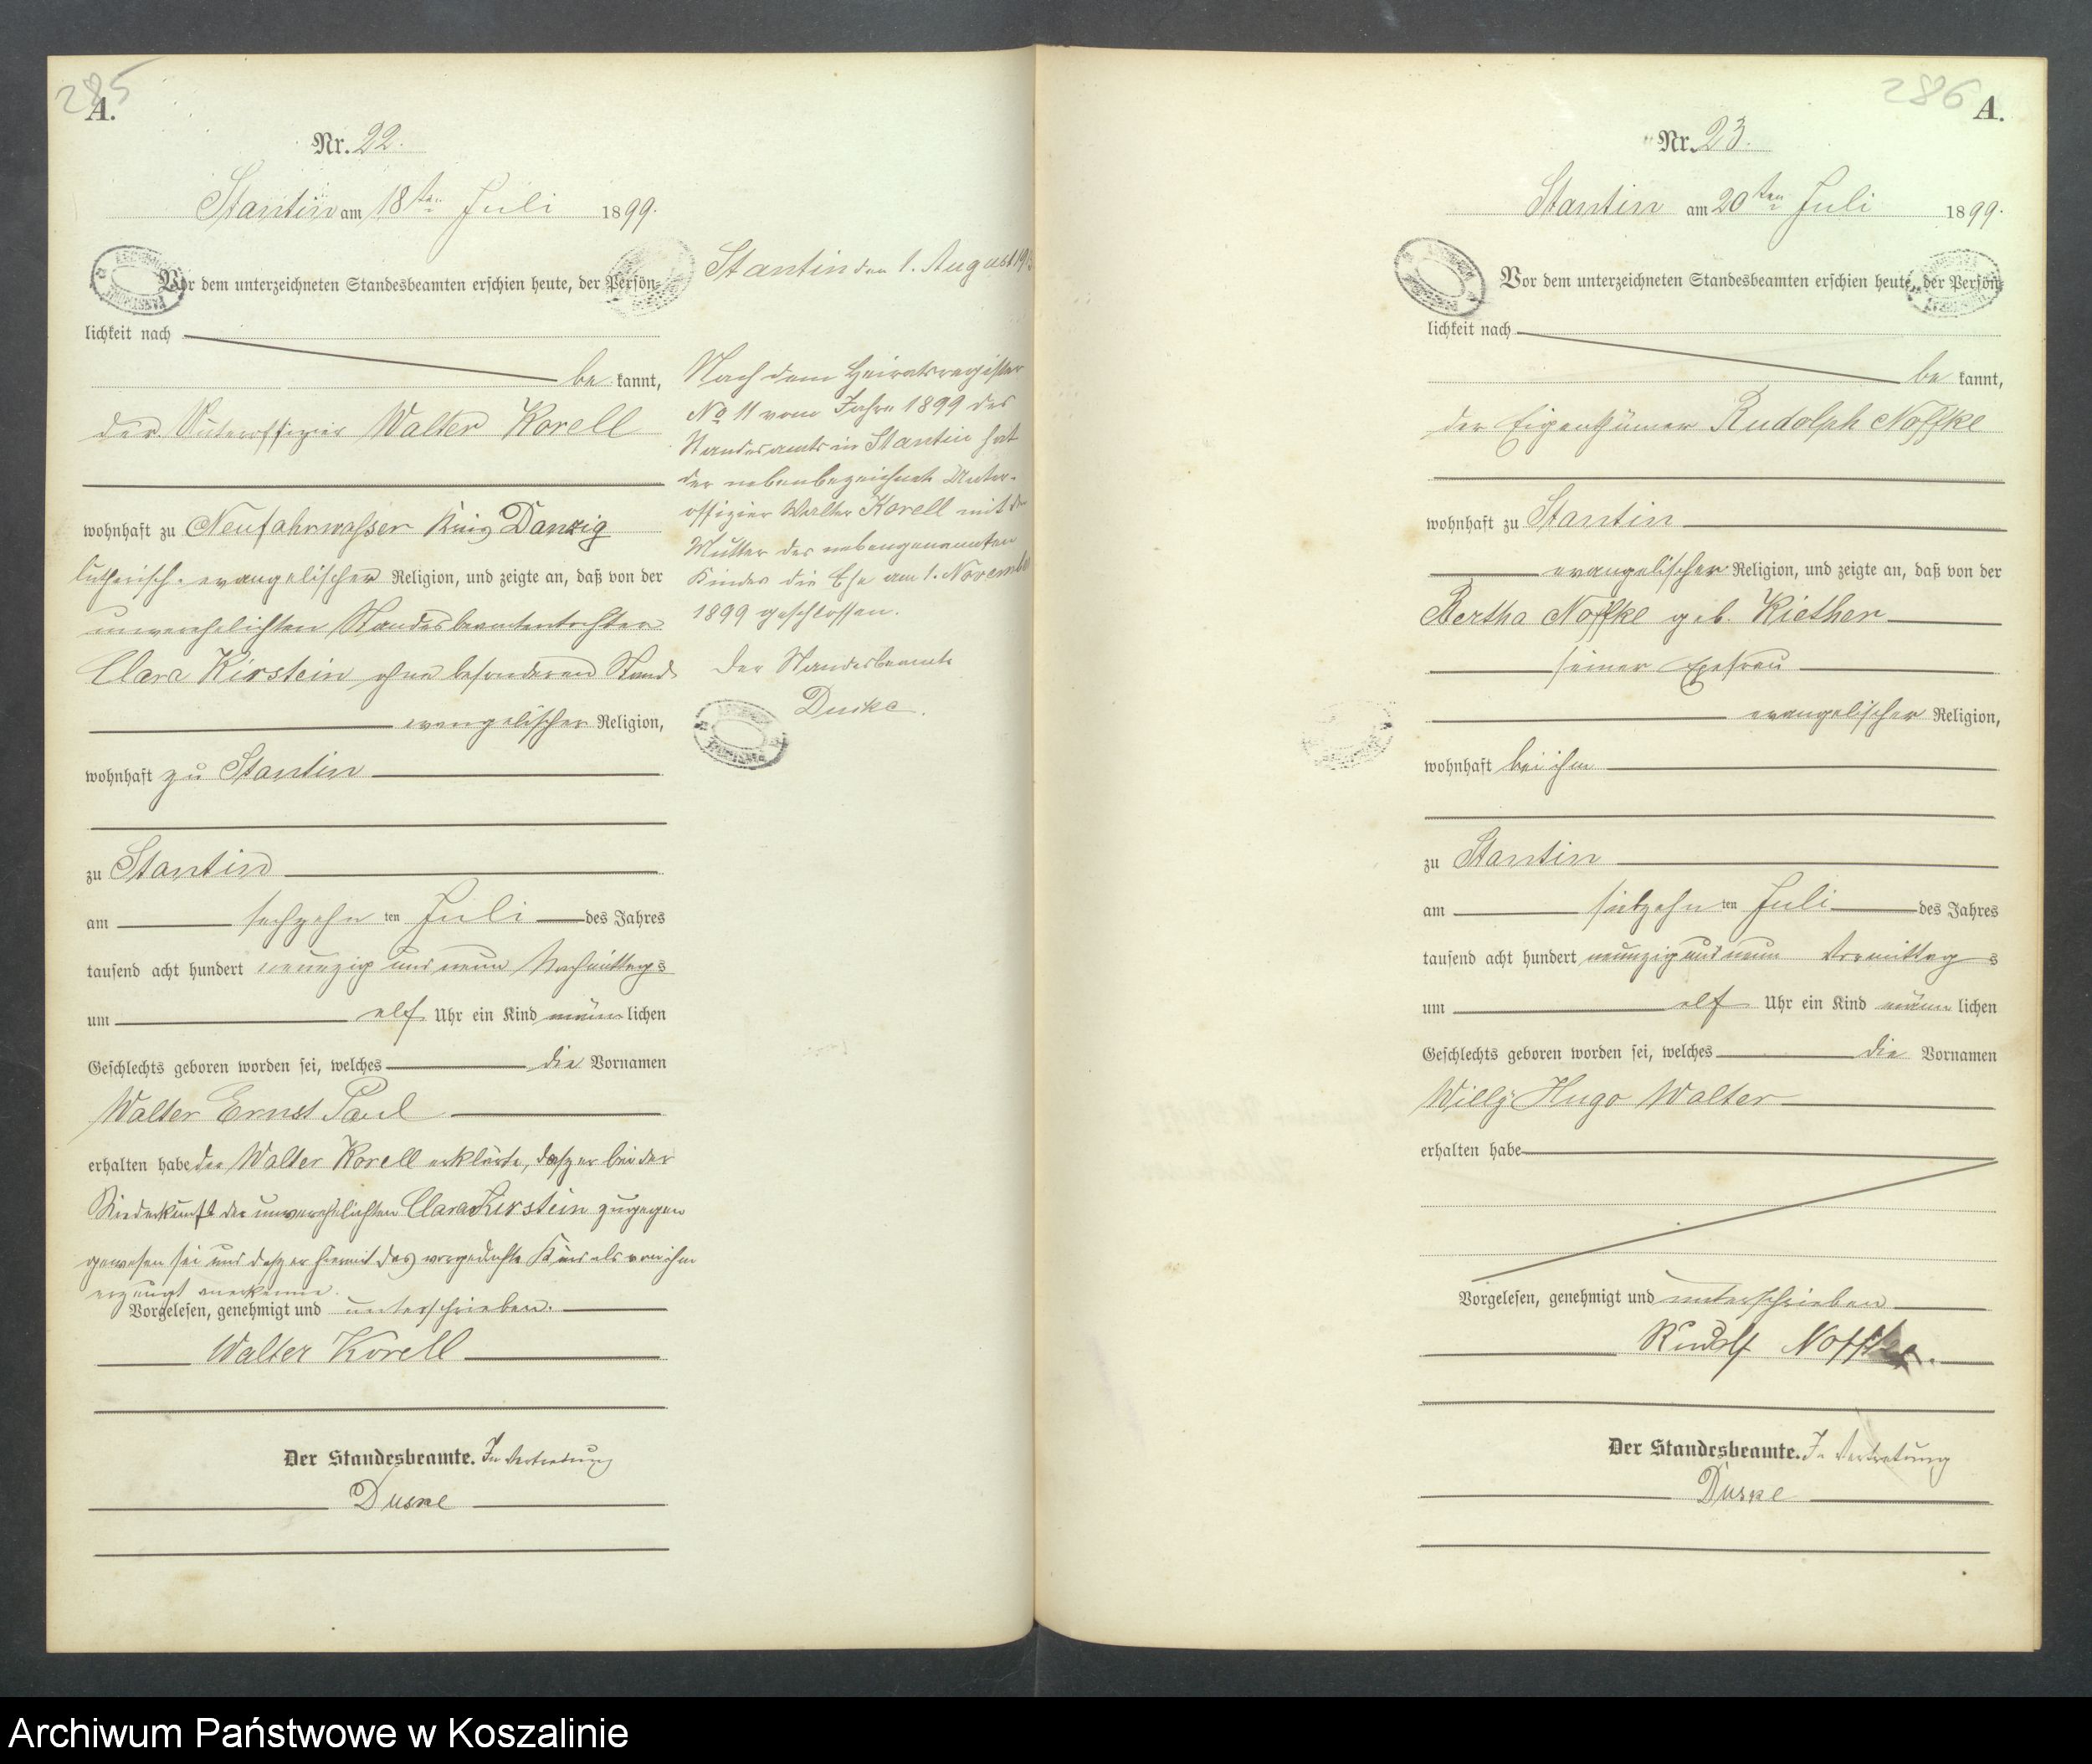 285
A.
Nr. 22.
Stantin am 18ten Juli 1899.
Vor dem unterzeichneten Standesbeamten erschien heute, der Persön-
lichkeit nach
be kannt,
der Unteroffizier Walter Korell
wohnhaft zu Neufahrwasser Kreis Danzig
lutherisch-evangelischer Religion, und zeigte an, daß von der
unverehelichten Standesbeamtentochter
Clara Kirstein ohne besonderen Stand
evangelischer Religion,
wohnhaft zu Stantin
zu Stantin
am sechzehn ten Juli des Jahres
tausend acht hundert neunzig und neun Nachmittags
um elf Uhr ein Kind männlichen
Geschlechts geboren worden sei, welches die Vornamen
Walter Ernst Paul
erhalten habe der Walter Korell erklärte, daß er bei der
Niederkunft der unverehelichten Clara Kirstein zugegen
gewesen sei und daß er hiermit das vorgedachte Kind als von ihm
erzeugt anerkenne.
Vorgelesen, genehmigt und unterschrieben.
Walter Korell
Der Standesbeamte. In Vertretung
Duske
Stantin den 1. August 19
Nach dem Heiratsregister
No 11 vom Jahre 1899 des
Standesamts in Stantin hat
der nebenbezeichnete Unter-
offizier Walter Korell mit der
Mutter des nebengenannten
Kindes die Ehe am 1. November
1899 geschlossen.
Der Standesbeamte
Duske.
286
A.
Nr. 23.
Stantin am 20ten Juli 1899.
Vor dem unterzeichneten Standesbeamten erschien heute, der Persön-
lichkeit nach
be kannt,
der Eigenthümer Rudolph Noffke
wohnhaft zu Stantin
evangelischer Religion, und zeigte an, daß von der
Bertha Noffke geb. Kiether
seiner Ehefrau
evangelischer Religion,
wohnhaft bei ihm
zu Stantin
am siebzehn ten Juli des Jahres
tausend acht hundert neunzig und neun Vormittags
um elf Uhr ein Kind männlichen
Geschlechts geboren worden sei, welches die Vornamen
Willy Hugo Walter
erhalten habe
Vorgelesen, genehmigt und unterschrieben
Rudolf Noffke.
Der Standesbeamte. In Vertretung
Duske
Archiwum Państwowe w Koszalinie